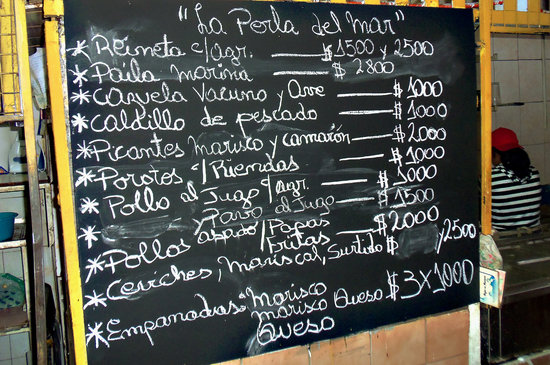 "La Perla del Mar"
* Reineta c/agr. $1500 y 2500
* Paila Marina $2800
* Cazuela Vacuno y Ave $1000
* Caldillo de pescado $1000
* Picantes Marisco y camarón $2000
* Porotos c/Riendas $1000
* Pollo al Jugo c/agr. $1000
* Pavo al Jugo $1500
* Pollos asado/Papas Fritas $2000
* Ceviches, Mariscal, Surtido $ y 2500
* Empanadas: Marisco $3x1000
Marisco Queso
Queso